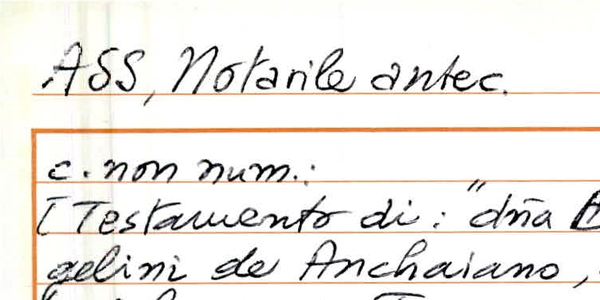 ASS, Notarile antec.
c. non num.:
[Testamento di: "dña
gelini de Anchaiano,